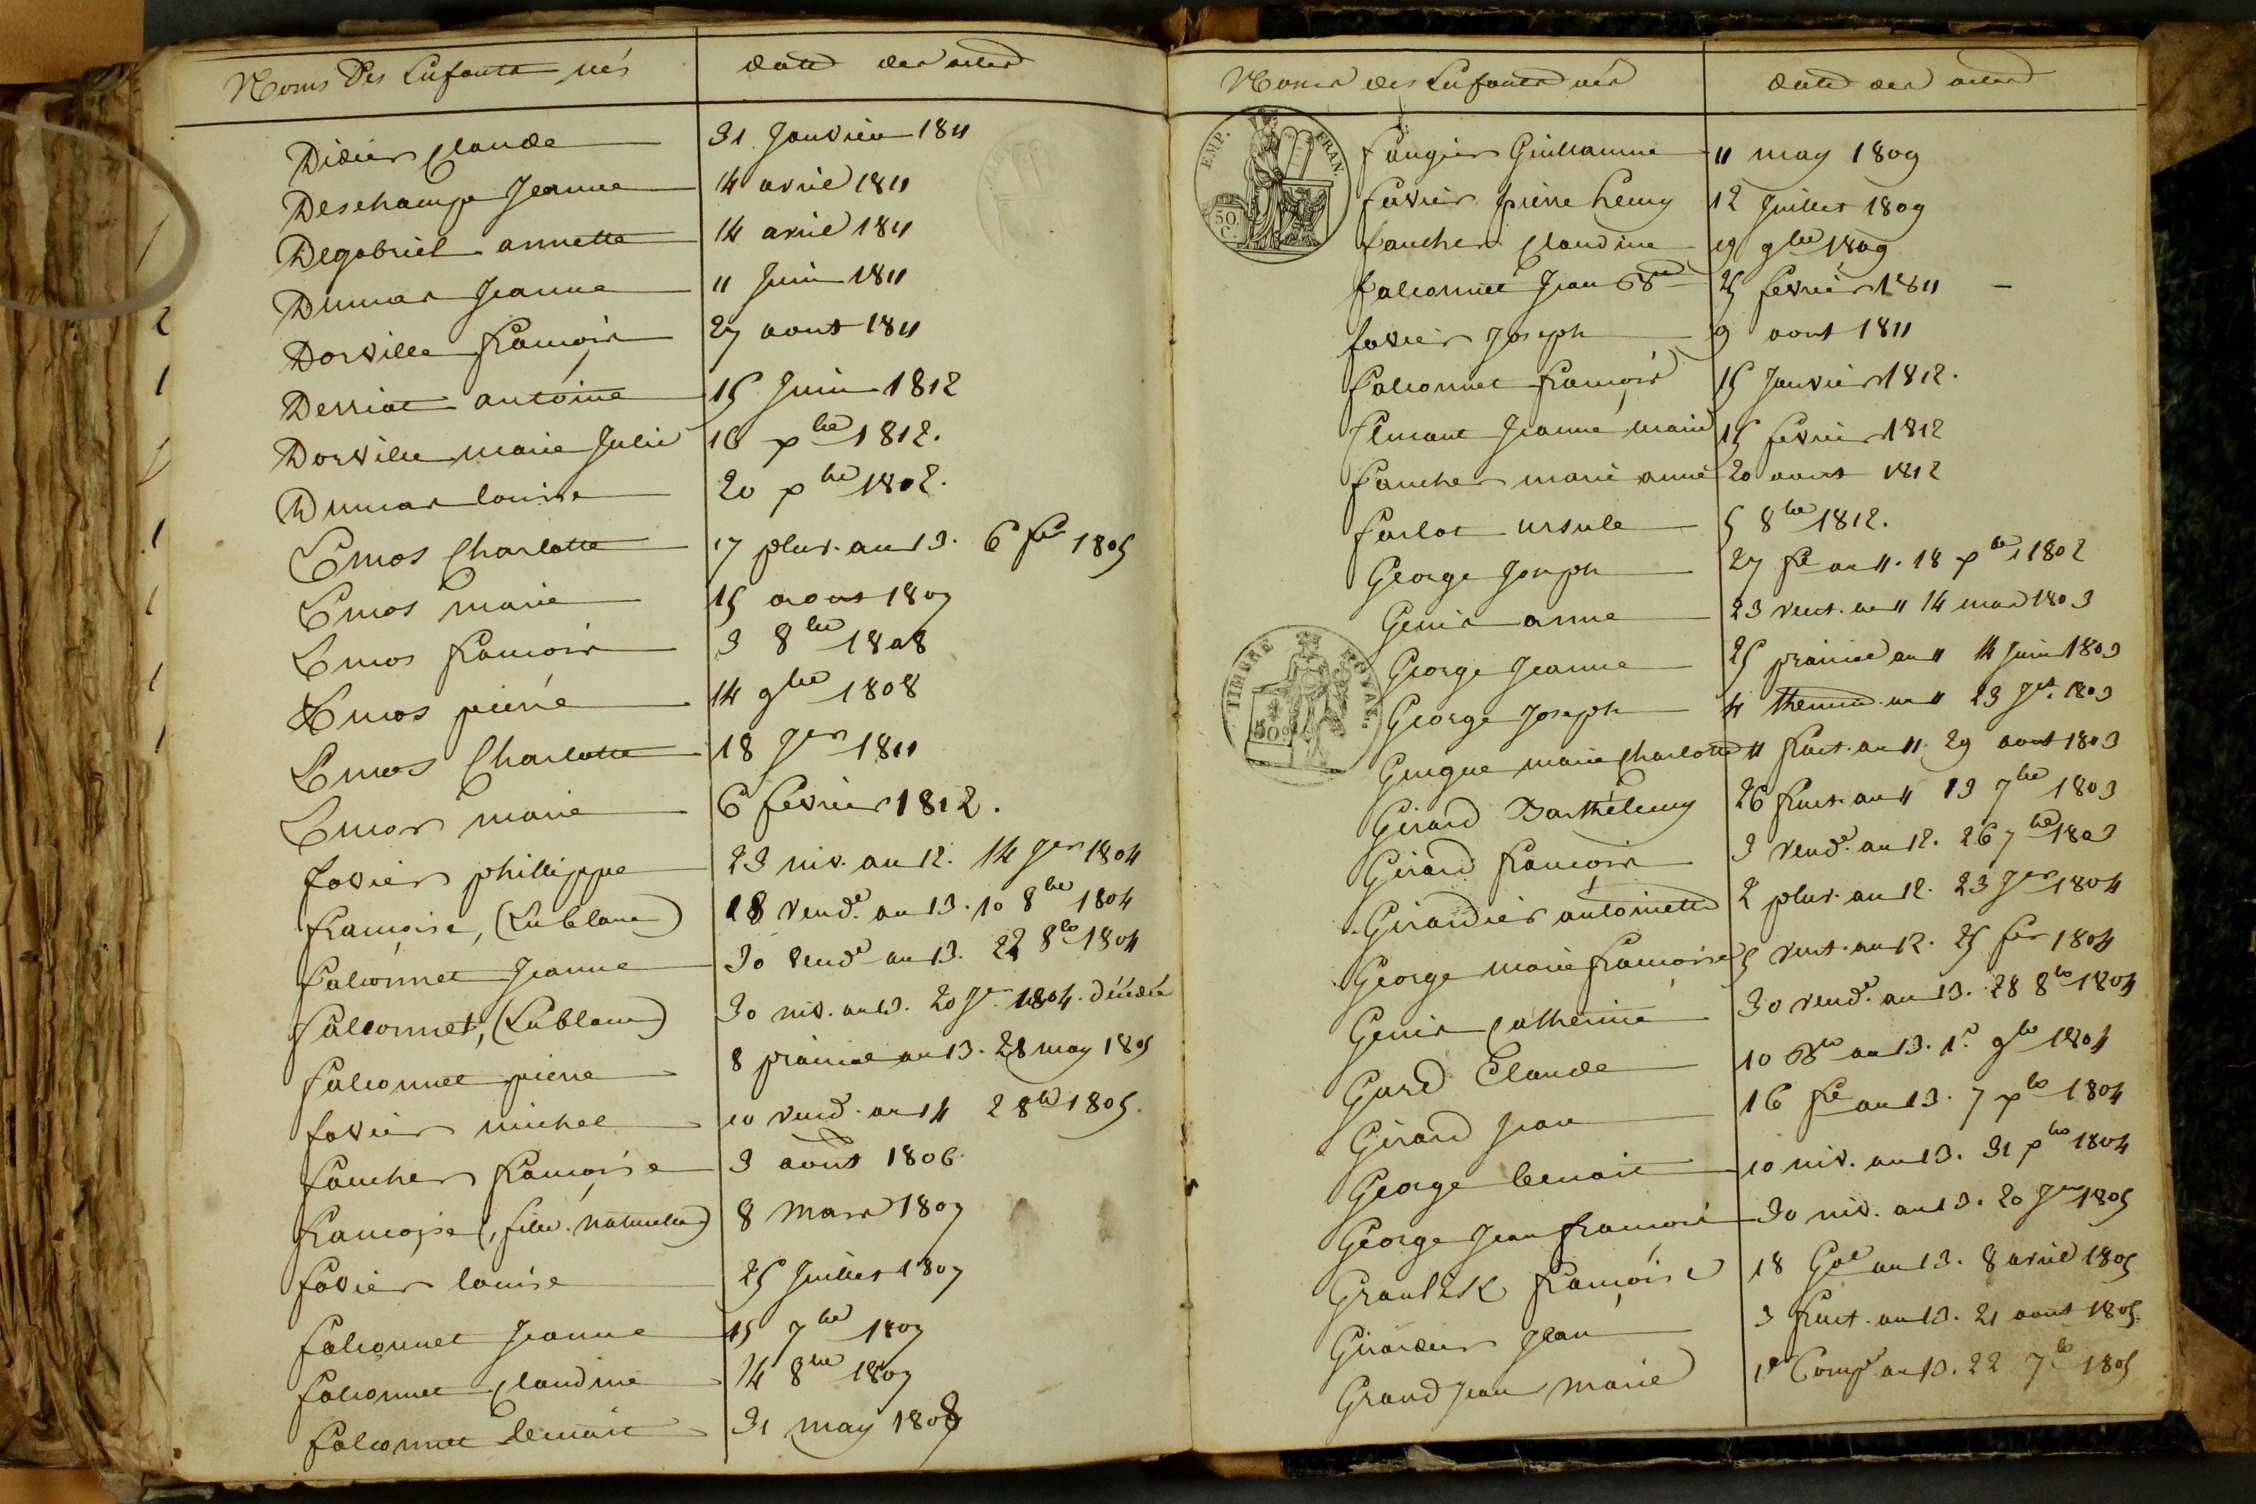 Noms Des Enfants nés
date des actes
Didier Claude 31 Janvier 1811
Deschamps Jeanne 14 avril 1811
Degabriel annette 14 avril 1811
Dumas Jeanne 11 Juin 1811
Dorville François 27 aout 1811
Derriat antoine 15 Juin 1812
Dorville marie Julie 16 xbre 1812.
Dumas louise 20 xbre 1802.
Emos Charlotte 17 pluv. an 13. 6 fer 1805
Emos marie 15 aoust 1807
Emos François 3 8bre 1808
Emos pierre 14 9bre 1808
Emos Charlotte 18 Jer 1811
Emos marie 6 fevrier 1812.
favier phillippe 23 niv. an 12. 14 Jer 1804
françoise, (Enblanc) 18 vend.e an 13. 10 8bre 1804
falconnet Jeanne 30 vend.e an 13. 22 8bre 1804
falconnet, (Enblanc) 30 niv. an 13. 20 Jer 1804.
falconnet pierre 8 prairial an 13. 28 may 1805
favier michel 10 vend. an 14 2 8bre 1805.
faucher françoise 3 août 1806
françoise (, fille. naturelle) 8 mars 1807
favier louise 25 Juillet 1807
falconnet Jeanne 15 7bre 1807
falconnet Claudine 14 8bre 1807
falconnet benoit 31 may 1808
Noms des Enfants nés
date des actes
EMP. FRAN.
50. C.
faugier Guillaumme 11 may 1809
favier pierre henry 12 Juillet 1809
faucher Claudine 19 9bre 1809
falconnet Jean Bte 25 fevrier 1811
favier Joseph 9 aout 1811
falconnet françois 15 Janvier 1812.
Jeanne marie 15 fevrier 1812
faucher marie anne 20 aout 1812
farlot ursule 5 8bre 1812.
George Joseph 27 fre an 11. 18 xbre 1802
Genis anne 23 vent. an 11 14 mars 1803
TIMBRE ROYAL.
50c
George Jeanne 25 prairial an 11 14 Juin 1803
George Joseph 4 thermid. an 11 23 Jet. 1803
Guigue marie Charlotte 11 fruct. an 11. 29 aout 1803
Girard Barthélemy 26 fruct. an 11 13 7bre 1803
Girard françois 3 vend.e an 12. 26 7bre 1803
Girardier antoinette 2 pluv. an 12. 23 Jer 1804
George marie françoise 5 vent. an 12. 25 fer 1804
Genis Catherine 30 vend.e an 13. 28 8bre 1804
Gard Claude 10 Bre an 13. 1er 9bre 1804
Girard Jean 16 fre an 13. 7 xbre 1804
George benoit 10 niv. an 13. 31 xbre 1804
George Jean françois 30 niv. an 13. 20 Jer 1805
françoise 18 Gal an 13. 8 avril 1805
Girardier Jean 3 fruct. an 13. 21 aout 1805.
Grand Jean marie 1er Compre an 13. 22 7bre 1805